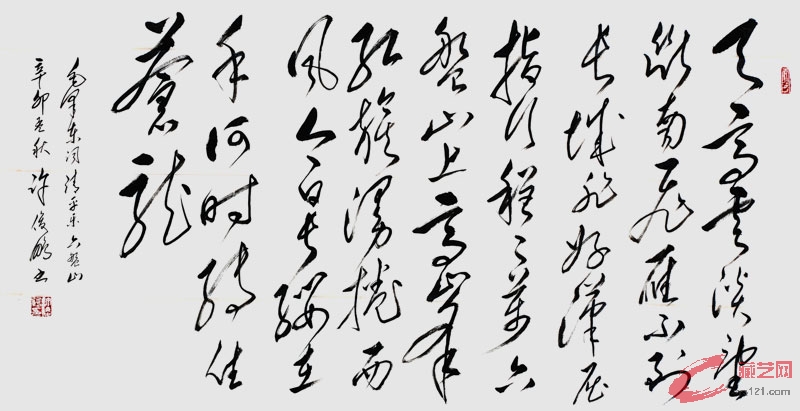 天高雲淡望
斷南飛雁不到
长城非好漢屈
指行程二萬六
盤山上高峰
红旗漫捲西
風今日长缨在
手何时缚住
蒼龍
毛泽东词清平乐六盘山
辛卯秋许俊鹏书
藏艺网
121.com